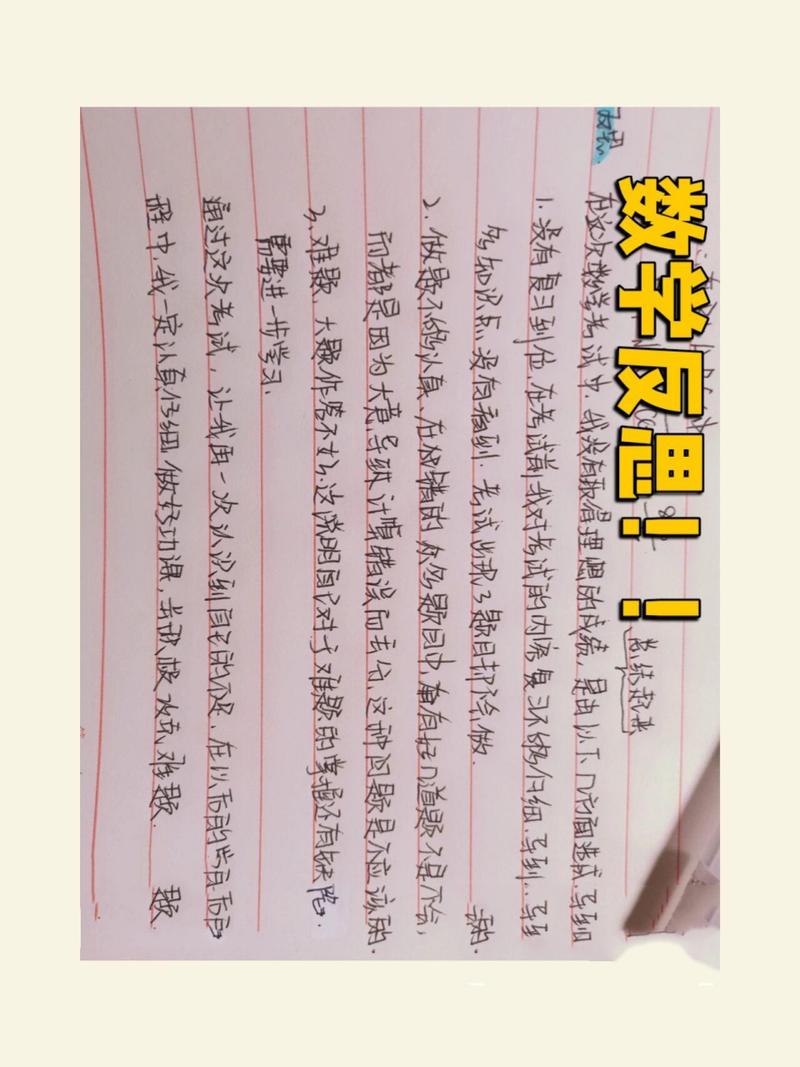 数学反思！！
反思:
总结规律
在这次数学考试中，我没有取得理想的成绩，是由以下几方面造成，导到
1.没有复习到位，在考试前我对考试的内容复习不够仔细，导到..导到
多知识点没有看到.考试出现了题目都不会做.
2.做题不够认真、在做错的众多题目中，有好几道题不是不会，
而都是因为大意，导致计算错误而丢分，这种问题是不应该的.
3.难题、大题作答不好，这说明自己对于难题的掌握还有缺陷，
需要进一步学习.
通过这次考试，让我再一次认识到自己的不足，在以后的学习
程中，我一定认真仔细，做好功课，积极攻克难题.
题